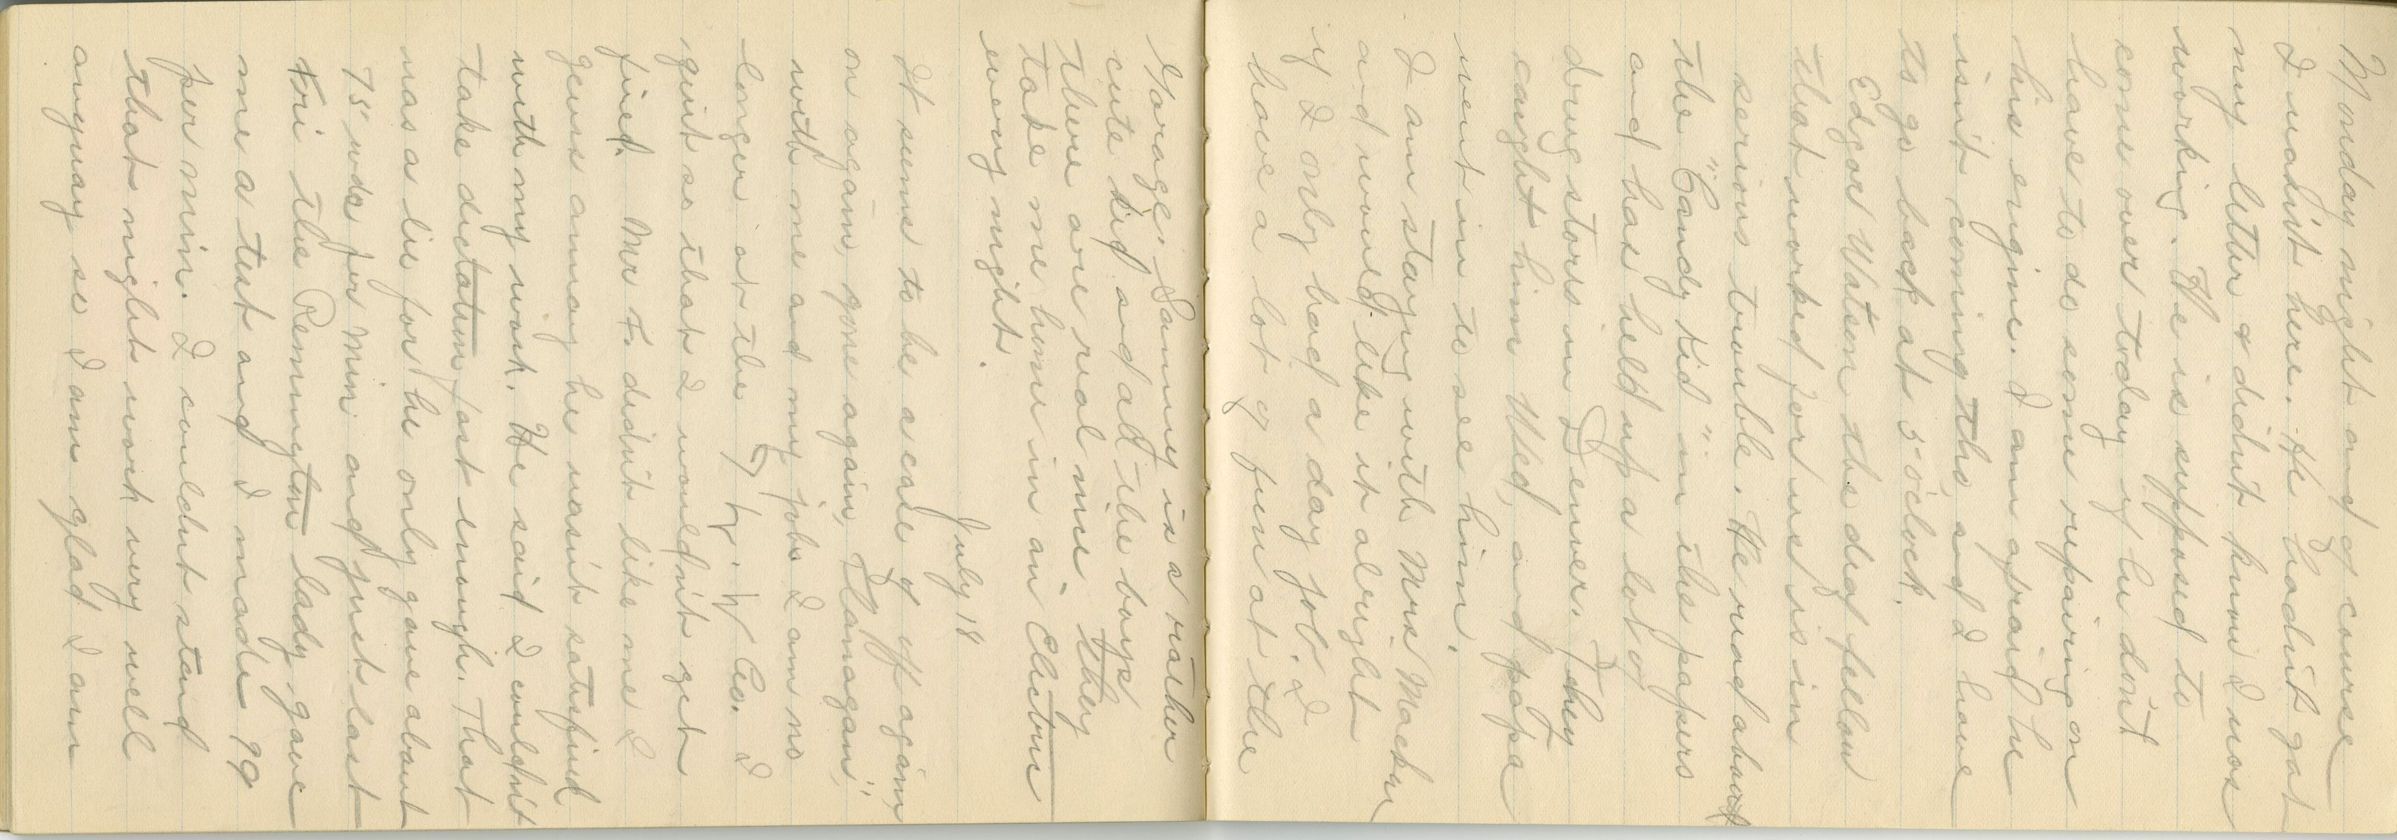 Monday night and of course
I wasn't here. He hadn't got
my letter & didn't know I was
working. He is supposed to
come over today if he don't
have to do some repairing on
his engine. I am afraid he
isn't coming tho, and I have
to go back at 5 o'clock.
Edgar Watson the deaf fellow
that worked for us is in
serious trouble. He read about
the "Candy Kid" in the papers
and has held up a lot of
drug stores in Denver. They
caught him Wed, and papa
went in to see him.
I am staying with Mrs Mackey
and would like it alright
if I only had a day job. I
have a lot of fun at the
Garage. Sammy is a rather
cute kid and all the boys
there are real nice they
take me home in an Electric
every night.
July 18
It seems to be a case of off again,
on again, gone again, Flanagan,
with me and my jobs I am no
longer at the F. F. W Co. I
quit so that I wouldn't get
fired. Mr F. didn't like me I
guess anyway he wasn't satisfied
with my work. He said I couldn't
take dictation fast enough. That
was a lie for he only gave about
75 wds per min and just last
Fri the Remington lady gave
me a test and I made 99
per min. I couldn't stand
that might work very well
anyway so I am glad I am